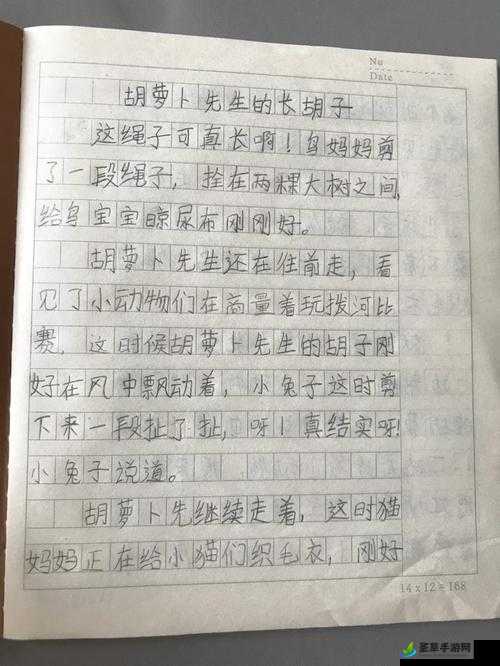 No
Date
胡萝卜先生的长胡子
这绳子可真长啊！鸟妈妈剪
了一段绳子，拴在两棵大树之间，
给鸟宝宝晾尿布刚刚好。
胡萝卜先生还在往前走，看
见了小动物们在商量着玩拨河比
赛，这时候胡萝卜先生的胡子刚
好在风中飘动着，小兔子这时剪
下来一段扯了扯，呀！真结实呀！
小兔子说道。
胡萝卜先继续走着，这时猫
妈妈正在给小猫们织毛衣，刚好
14x12=168
荃草手游网